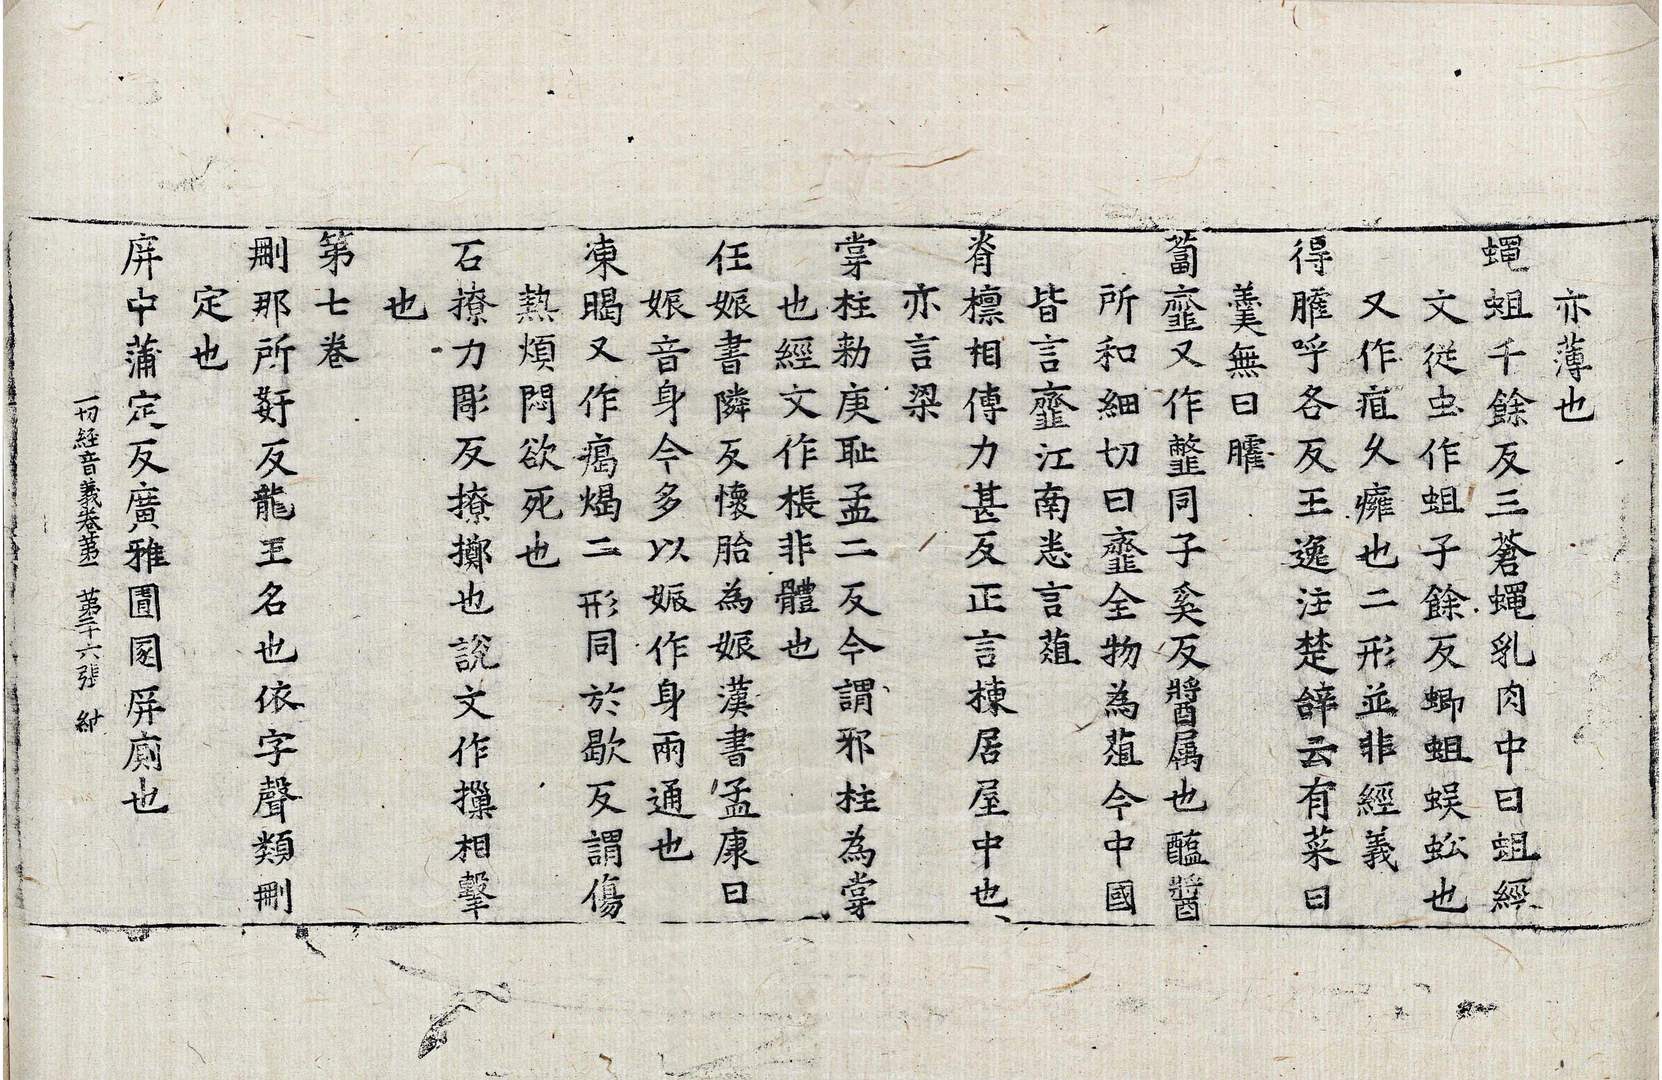 亦薄也
蠅蛆千餘反三蒼蠅乳肉中曰蛆經
文從虫作蛆子餘反蝍蛆蜈蚣也
又作疽久癰也二形並非經義
得臛呼各反王逸注楚辭云有菜曰
羹無曰臛
蔔齏又作韲同子奚反醬属也醢醬
所和細切曰齏全物為葅今中國
皆言齏江南悉言葅
脊檁相傳力甚反正言棟居屋中也
亦言梁
牚柱勅庚耻孟二反今謂邪柱為牚
也經文作棖非體也
任娠書隣反懷胎為娠漢書孟康曰
娠音身今多以娠作身兩通也
凍暍又作㿣煬二形同於歇反謂傷
熱煩悶欲死也
石撩力彫反撩擲也說文作摷相擊
也
第七卷
刪那所姧反龍王名也依字聲類刪
定也
屏中蒲定反廣雅圊圂屏廁也
一切經音義卷第 第二十六張